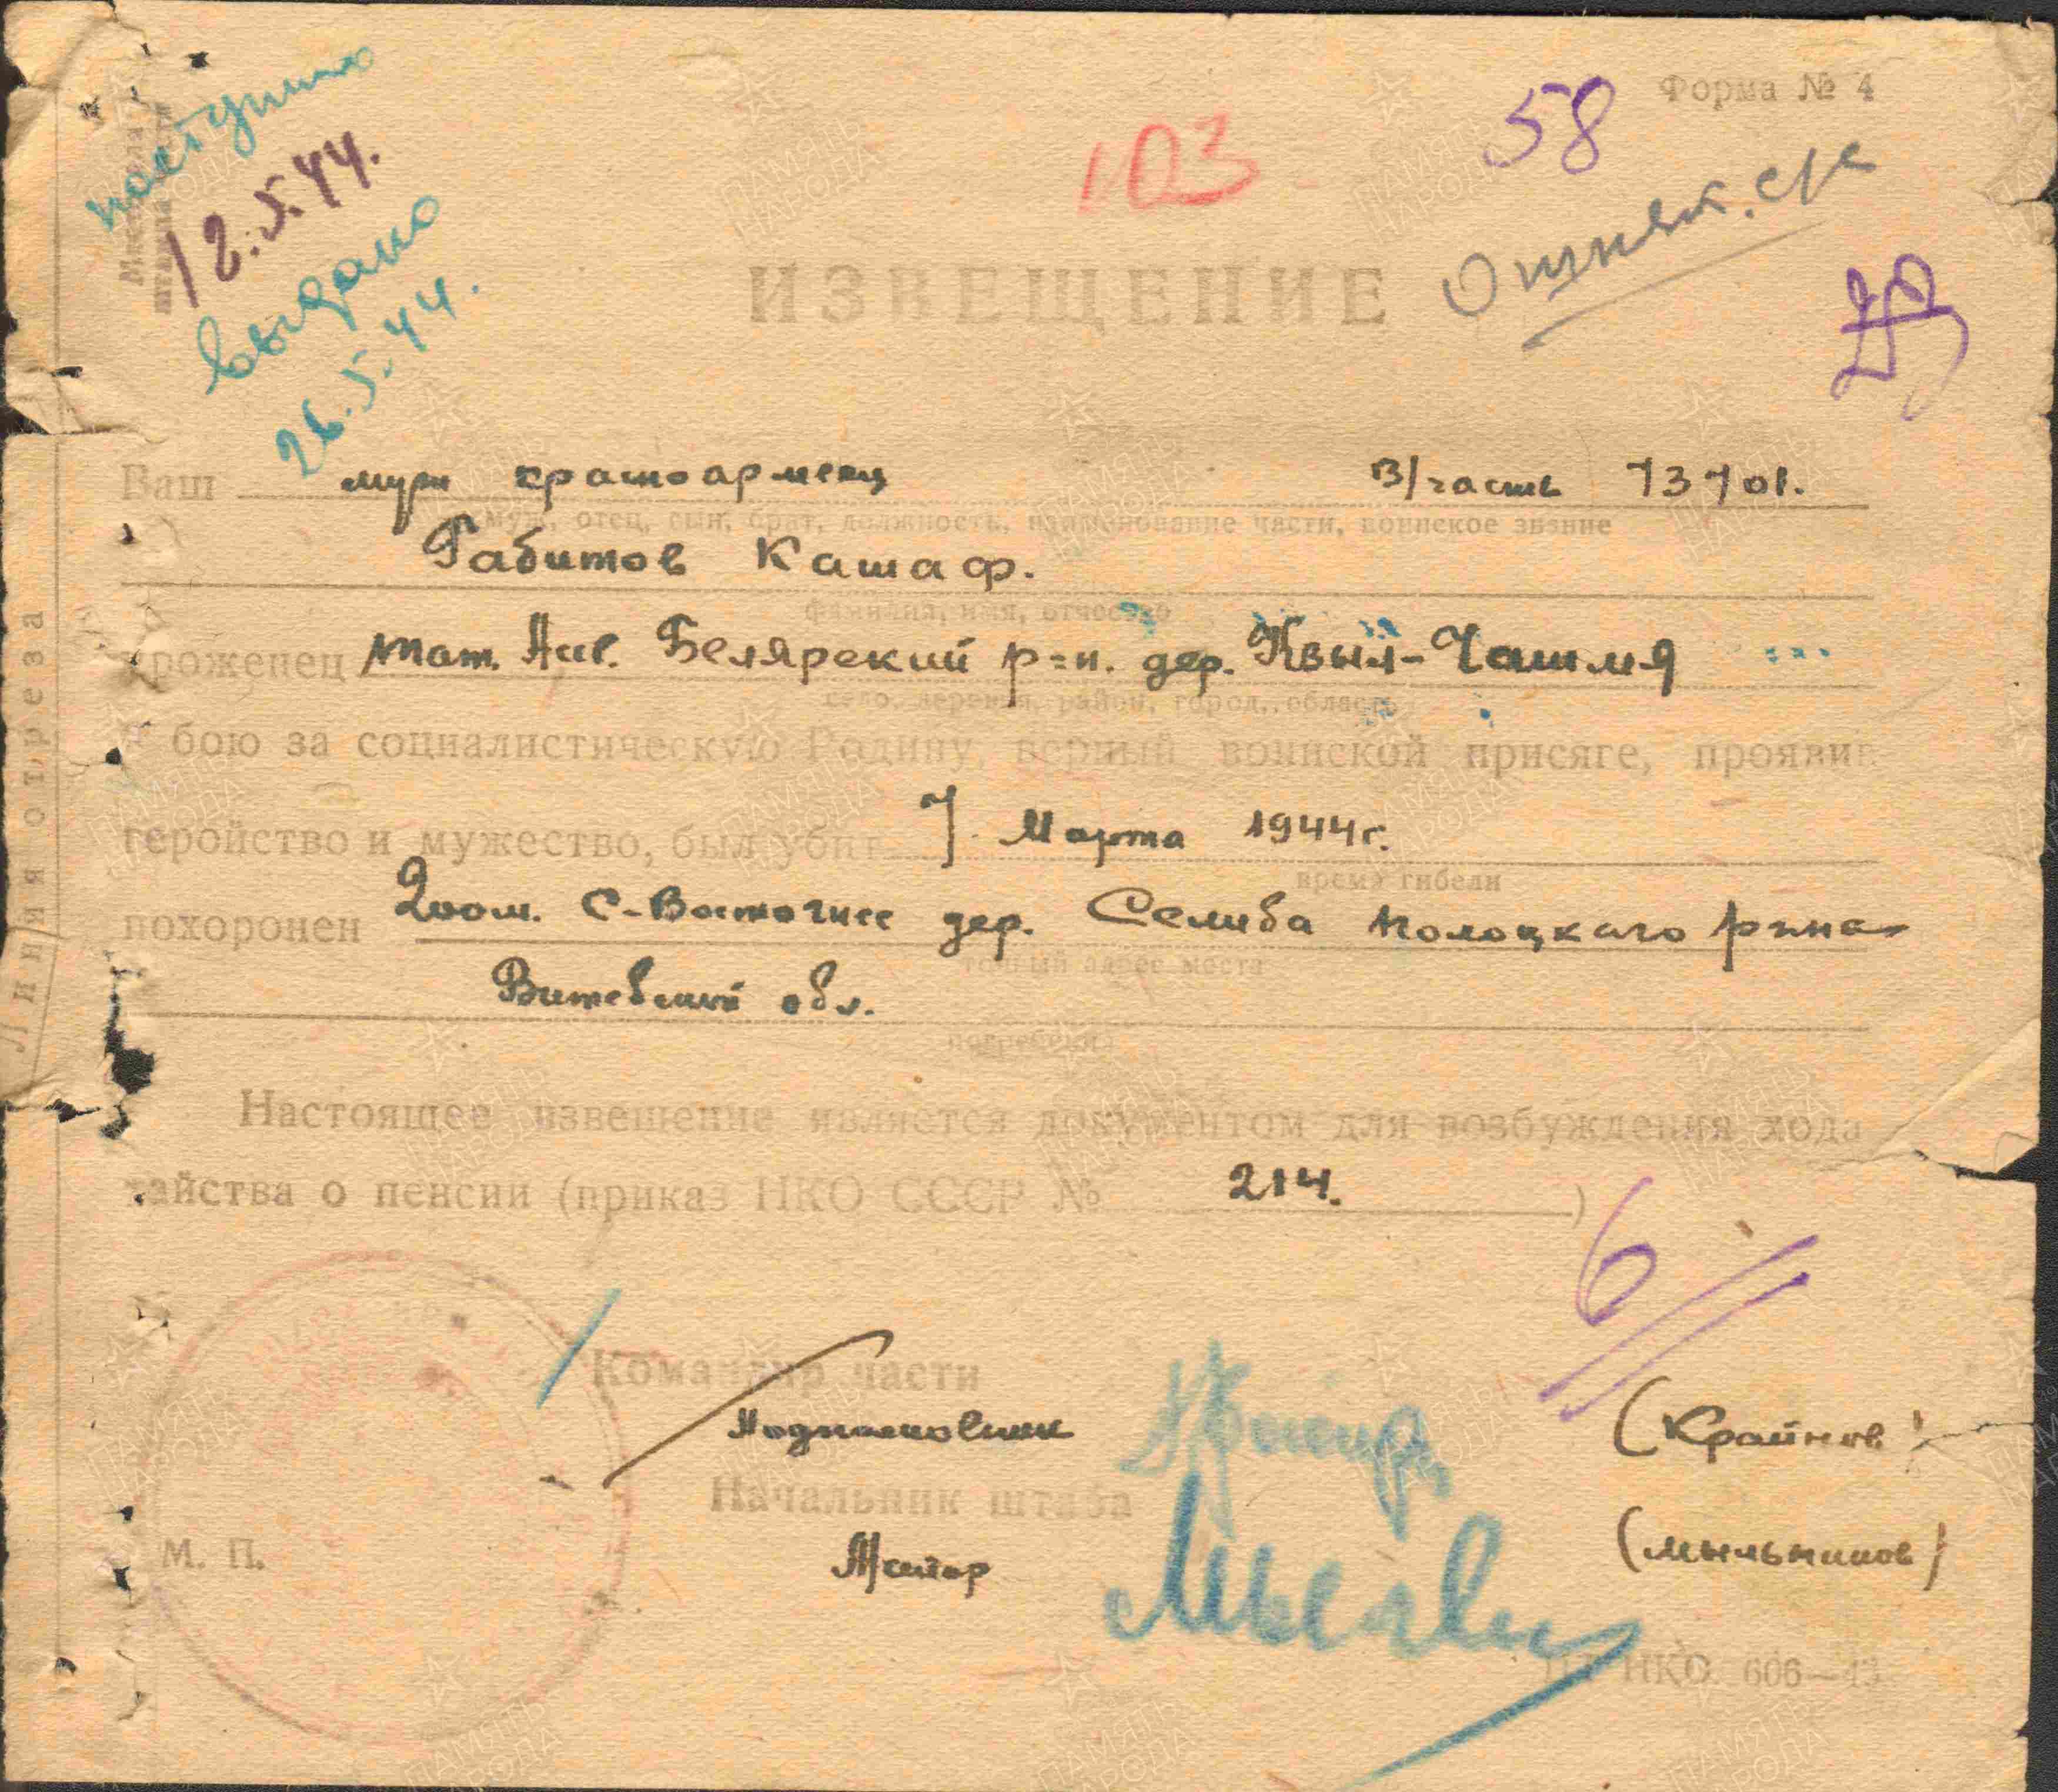 Форма № 4
поступило
12.5.44.
выдано
26.5.44.
103
58
Место для
штампа части
ИЗВЕЩЕНИЕ
Ваш муж красноармеец В/часть 73701.
(муж, отец, сын, брат, должность, наименование части, воинское звание
Габитов Кашаф.
фамилия, имя, отчество
уроженец Тат. Билярский р-н. дер. Квыл-Чашмя
село, деревня, район, город, область
В бою за социалистическую Родину, верный воинской присяге, проявив
геройство и мужество, был убит 7. Марта 1944г.
время гибели
похоронен 200м. С-Восточнее дер. Селиба Полоцкаго р-на
точный адрес места
Витебской обл.
погребения
Настоящее извещение является документом для возбуждения хода
тайства о пенсии (приказ НКО СССР № 214.)
6
Командир части
Подполковник (Крайнов)
Начальник штаба
Майор (Мыльников)
М. П.
НКО 606—43
Линия отреза